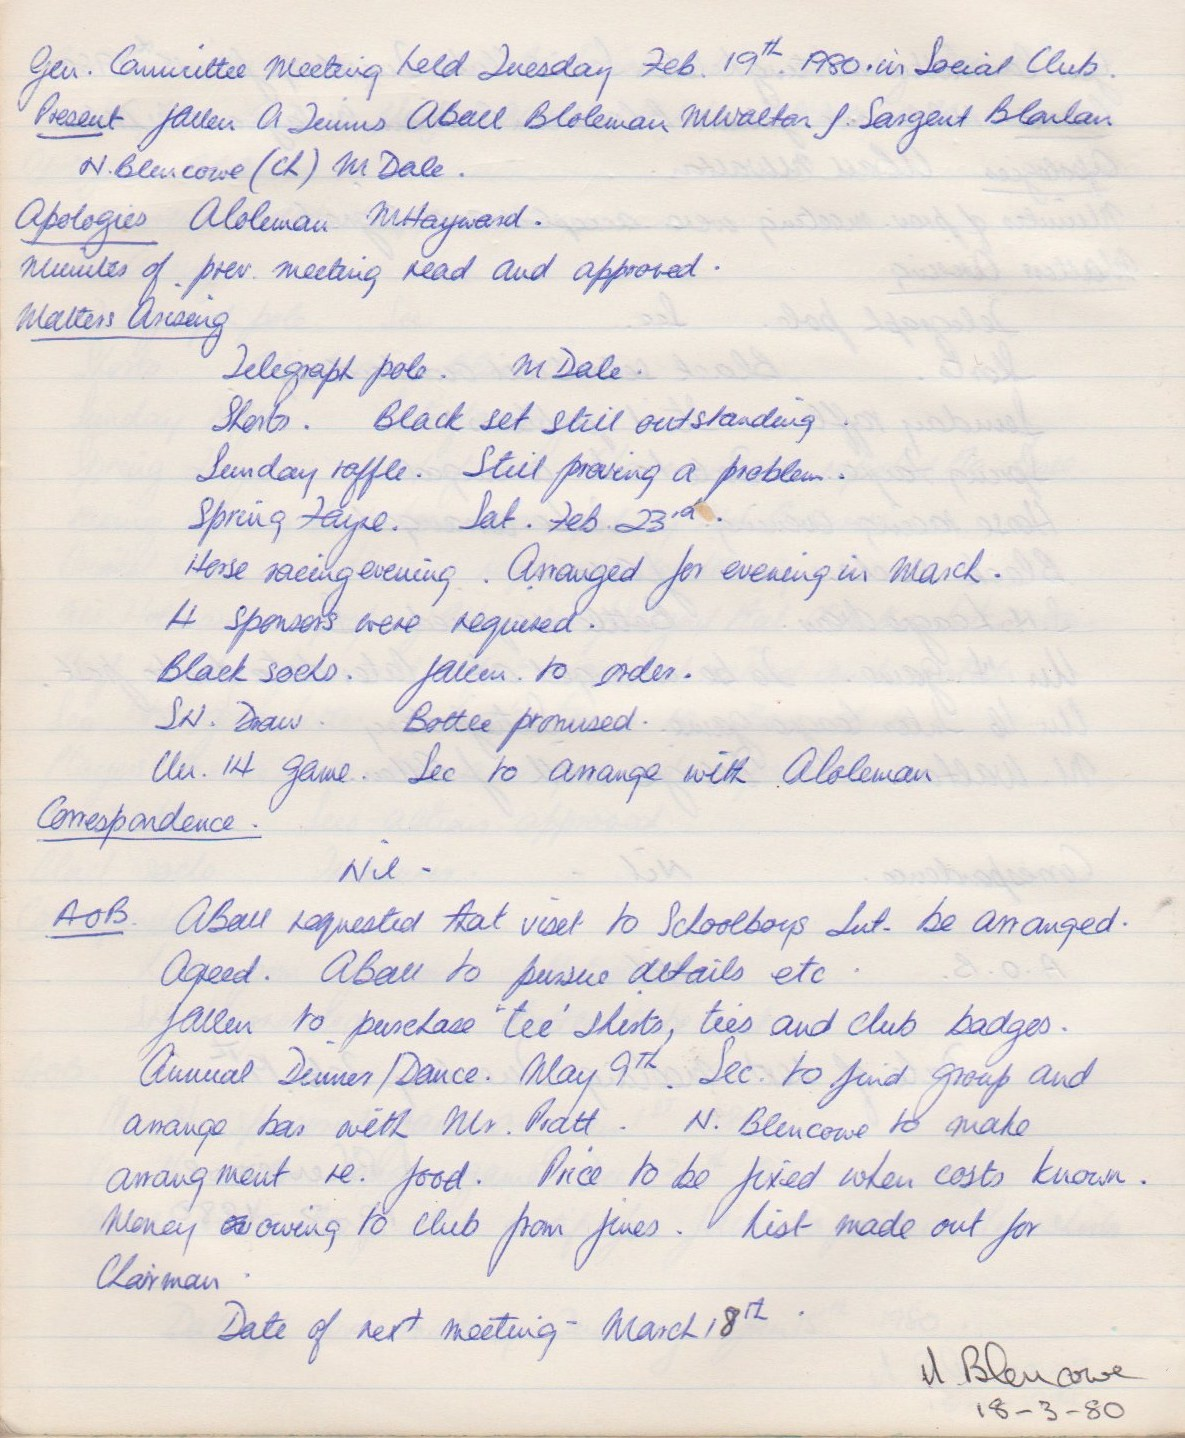 Gen. Committee Meeting held Tuesday Feb. 19th. 1980. in Social Club.
Present J Allen A Timms A Ball B Coleman M Walton J. Sargent B Conlan
N. Blencowe (Ch) M Dale.
Apologies A Coleman M Hayward.
Minutes of prev. meeting read and approved.
Matters Arising
Telegraph pole. M Dale.
Shorts. Black set still outstanding.
Sunday raffle. Still proving a problem.
Spring Fayre. Sat. Feb. 23rd.
Horse racing evening. Arranged for evening in March.
4 sponsors were required.
Black socks. J Allen. to order.
SN. Draw. Bottle promised.
Un. 14 game. Sec to arrange with A Coleman
Correspondence.
Nil -
A O B. A Ball requested that visit to Schoolboys Int- be arranged.
Agreed. A Ball to pursue details etc.
J Allen to purchase 'tee' shirts, ties and club badges.
Annual Dinner/Dance. May 9th. Sec. to find group and
arrange bar with Mr. Pratt. N. Blencowe to make
arrangment re. food. Price to be fixed when costs known.
Money owing to club from fines. List made out for
Chairman.
Date of next meeting - March 18th.
N Blencowe
18-3-80